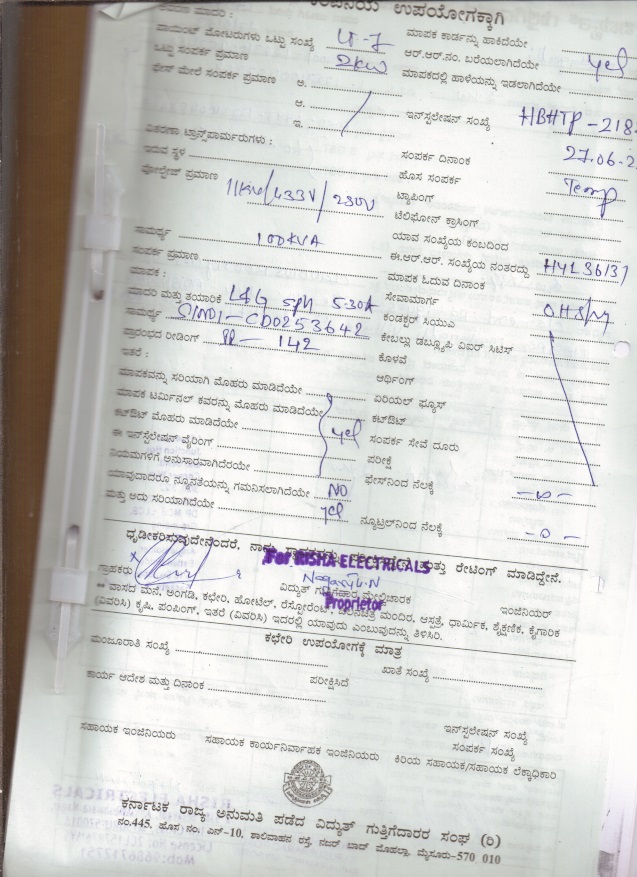 ಉಪಯೋಗಕ್ಕಾಗಿ
ಪಾಯಿಂಟ್ ಮೋಟರುಗಳು ಒಟ್ಟು ಸಂಖ್ಯೆ
ಮಾಪಕ ಕಾರ್ಡನ್ನು ಹಾಕಿದೆಯೇ
ಒಟ್ಟು ಸಂಪರ್ಕ ಪ್ರಮಾಣ 2KW
ಆರ್.ಆರ್.ನಂ. ಬರೆಯಲಾಗಿದೆಯೇ yes
ಫೇಸ್ ಮೇಲೆ ಸಂಪರ್ಕ ಪ್ರಮಾಣ ಅ.
ಮಾಪಕದಲ್ಲಿ ಹಾಳೆಯನ್ನು ಇಡಲಾಗಿದೆಯೇ
ಆ.
ಇ.
ಇನ್‌ಸ್ಟಲೇಷನ್ ಸಂಖ್ಯೆ HBHTP-218
ವಿತರಣಾ ಟ್ರಾನ್ಸ್‌ಫಾರ್ಮರುಗಳು :
ಸಂಪರ್ಕ ದಿನಾಂಕ 27.06.2
ಇರುವ ಸ್ಥಳ
ಹೊಸ ಸಂಪರ್ಕ Temp
ವೋಲ್ಟೇಜ್ ಪ್ರಮಾಣ 11KV/433V/230V
ಟ್ಯಾಪಿಂಗ್
ಟೆಲಿಫೋನ್ ಕ್ರಾಸಿಂಗ್
ಸಾಮರ್ಥ್ಯ 100KVA
ಯಾವ ಸಂಖ್ಯೆಯ ಕಂಬದಿಂದ
ಸಂಪರ್ಕ ಪ್ರಮಾಣ
ಈ.ಆರ್.ಆರ್. ಸಂಖ್ಯೆಯ ನಂತರದ್ದು HYL36137
ಮಾಪಕ :
ಮಾಪಕ ಓದುವ ದಿನಾಂಕ
ಮಾದರಿ ಮತ್ತು ತಯಾರಿಕೆ L&G sph 5-30A
ಸೇವಾಮಾರ್ಗ
ಸಾಮರ್ಥ್ಯ CD0253642
ಕಂಡಕ್ಟರ್ ಸಿಯುವಿ
ಪ್ರಾರಂಭದ ರೀಡಿಂಗ್ 142
ಕೇಬಲ್ಲು ಡಬ್ಲ್ಯೂಪಿ ಏಐರ್ ಸಿಟಿಸ್
ಇತರೆ :
ಕೊಳವೆ
ಮಾಪಕವನ್ನು ಸರಿಯಾಗಿ ಮೊಹರು ಮಾಡಿದೆಯೇ
ಆರ್ಥಿಂಗ್
ಮಾಪಕ ಟರ್ಮಿನಲ್ ಕವರನ್ನು ಮೊಹರು ಮಾಡಿದೆಯೇ
ಏರಿಯಲ್ ಫ್ಯೂಸ್
ಕಟ್‌ಔಟ್ ಮೊಹರು ಮಾಡಿದೆಯೇ yes
ಕಟ್‌ಔಟ್
ಈ ಇನ್‌ಸ್ಟಲೇಷನ್ ವೈರಿಂಗ್
ಸಂಪರ್ಕ ಸೇವೆ ದೂರು
ನಿಯಮಗಳಿಗೆ ಅನುಸಾರವಾಗಿದೆಯೇ
ಪರೀಕ್ಷೆ
ಯಾವುದಾದರೂ ನ್ಯೂನತೆಯನ್ನು ಗಮನಿಸಲಾಗಿದೆಯೇ NO
ಫೇಸ್‌ನಿಂದ ನೆಲಕ್ಕೆ -0-
ಮತ್ತು ಅದು ಸರಿಯಾಗಿದೆಯೇ yes
ನ್ಯೂಟ್ರಲ್‌ನಿಂದ ನೆಲಕ್ಕೆ -0-
ದೃಢೀಕರಿಸುವುದೇನೆಂದರೆ, ನಾನು ಮತ್ತು ರೇಟಿಂಗ್ ಮಾಡಿದ್ದೇನೆ.
For RISHA ELECTRICALS
Nagaraju.N
ಗ್ರಾಹಕರು
ವಿದ್ಯುತ್ ಗುತ್ತಿಗೆದಾರ/ಮೇಲ್ವಿಚಾರಕ
ಇಂಜಿನಿಯರ್
Proprietor
** ವಾಸದ ಮನೆ, ಅಂಗಡಿ, ಕಛೇರಿ, ಹೋಟೆಲ್, ರೆಸ್ಟೋರೆಂಟ್, ಚಲನಚಿತ್ರ ಮಂದಿರ, ಆಸ್ಪತ್ರೆ, ಧಾರ್ಮಿಕ, ಶೈಕ್ಷಣಿಕ, ಕೈಗಾರಿಕ
(ವಿವರಿಸಿ) ಕೃಷಿ, ಪಂಪಿಂಗ್, ಇತರೆ (ವಿವರಿಸಿ) ಇದರಲ್ಲಿ ಯಾವುದು ಎಂಬುವುದನ್ನು ತಿಳಿಸಿರಿ.
ಕಛೇರಿ ಉಪಯೋಗಕ್ಕೆ ಮಾತ್ರ
ಮಂಜೂರಾತಿ ಸಂಖ್ಯೆ
ಖಾತೆ ಸಂಖ್ಯೆ
ಕಾರ್ಯ ಆದೇಶ ಮತ್ತು ದಿನಾಂಕ
ಪರೀಕ್ಷಿಸಿದೆ
ಇನ್‌ಸ್ಟಲೇಷನ್ ಸಂಖ್ಯೆ
ಸಂಪರ್ಕ ಸಂಖ್ಯೆ
ಸಹಾಯಕ ಇಂಜಿನಿಯರು
ಸಹಾಯಕ ಕಾರ್ಯನಿರ್ವಾಹಕ ಇಂಜಿನಿಯರು
ಕಿರಿಯ ಸಹಾಯಕ/ಸಹಾಯಕ ಲೆಕ್ಕಾಧಿಕಾರಿ
ಕರ್ನಾಟಕ ರಾಜ್ಯ ಅನುಮತಿ ಪಡೆದ ವಿದ್ಯುತ್ ಗುತ್ತಿಗೆದಾರರ ಸಂಘ (ರಿ)
ನಂ.445, ಹೊಸ ನಂ. ಎನ್-10, ಶಾಲಿವಾಹನ ರಸ್ತೆ, ನಜರ್ ಬಾದ್ ಮೊಹಲ್ಲಾ, ಮೈಸೂರು-570 010